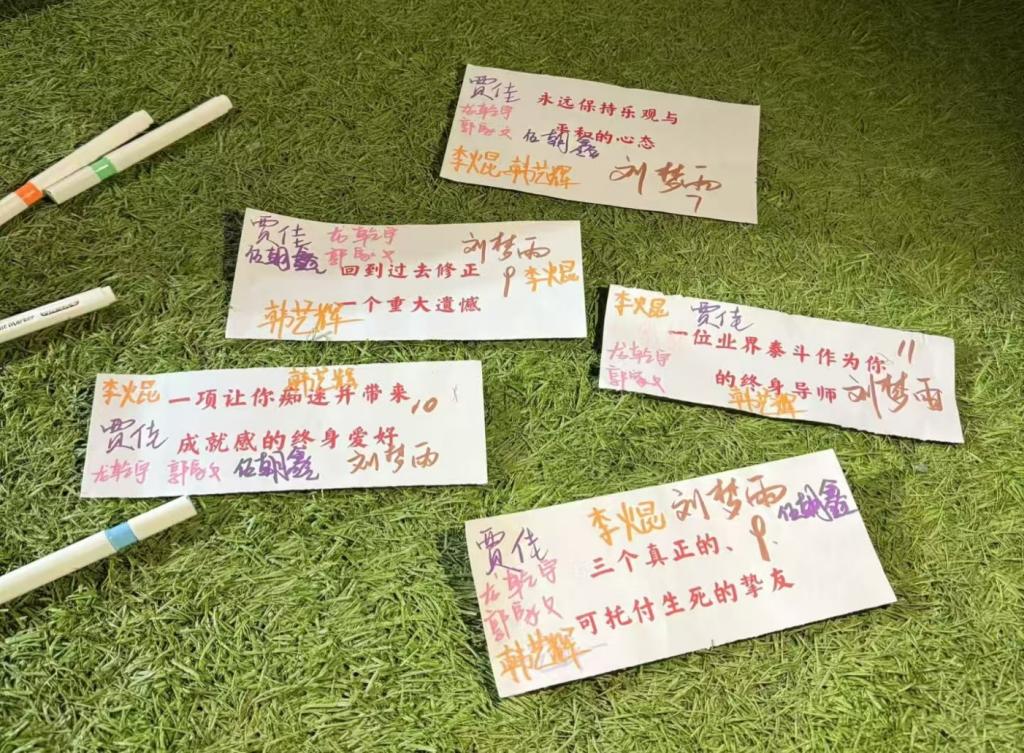 贾佳
永远保持乐观与
龙乾宇
郭家文
伍朝鑫
平和的心态
李焜 韩艺辉
刘梦雨
7
贾佳
龙乾宇
刘梦雨
伍朝鑫
郭家文
回到过去修正
9
李焜
韩艺辉
一个重大遗憾
李焜
贾佳
一位业界泰斗作为你
11
龙乾宇
郭家文
的终身导师
韩艺辉
刘梦雨
李焜
韩艺辉
一项让你痴迷并带来
10
贾佳
成就感的终身爱好
龙乾宇
郭家文
伍朝鑫
刘梦雨
李焜
刘梦雨
伍朝鑫
贾佳
三个真正的、
9
龙乾宇
郭家文
可托付生死的挚友
韩艺辉